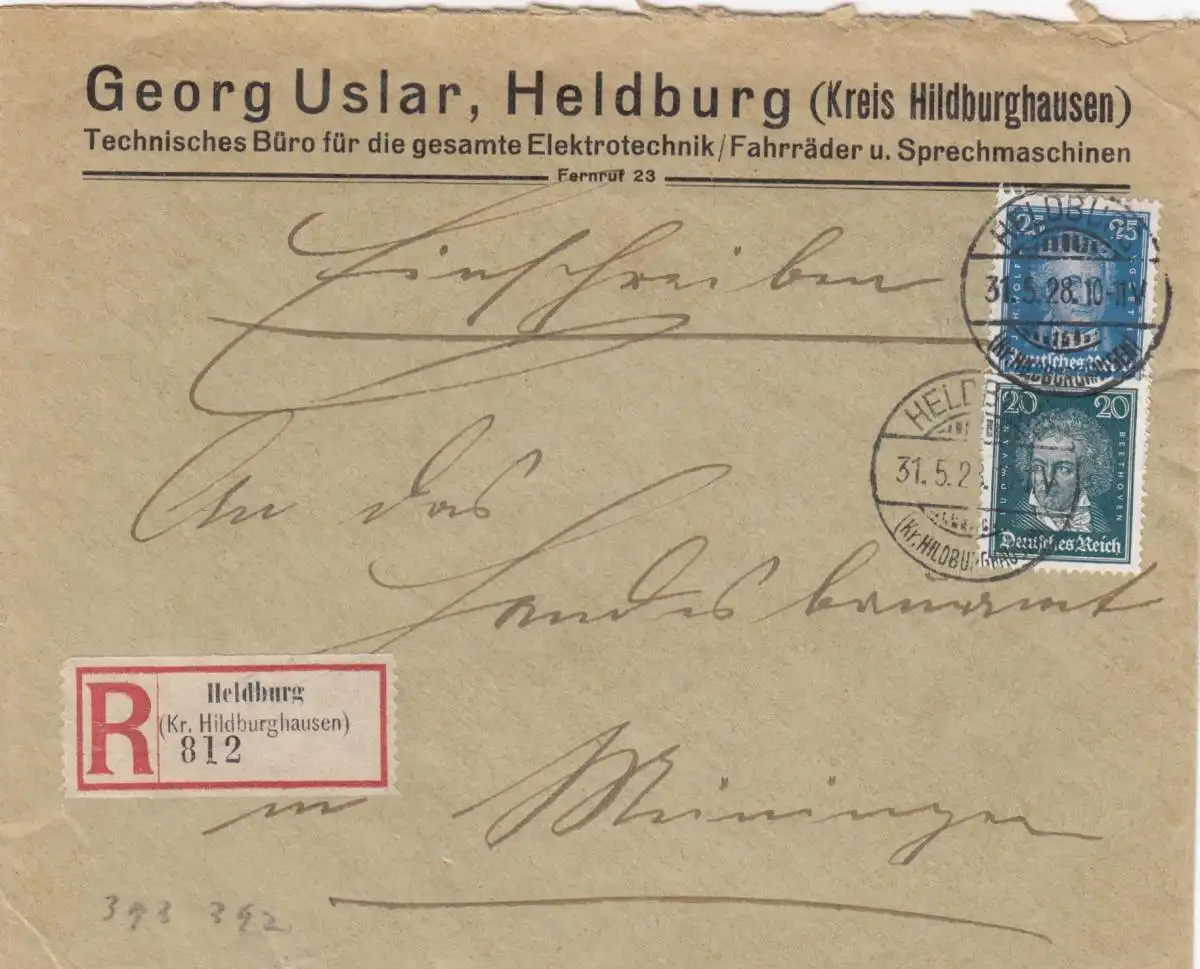 Georg Uslar, Heldburg (Kreis Hildburghausen)
Technisches Büro für die gesamte Elektrotechnik/Fahrräder u. Sprechmaschinen
Fernruf 23
Einschreiben
25 25
HELDBURG
31.5.28.10-11V
(Kr. HILDBURGHAUSEN)
Deutsches
An das
20 20
LUDW. VAN BEETHOVEN
Deutsches Reich
HELDB
31.5.28. V
(Kr. HILDBURGHAUS
Landesbauamt
R
Heldburg
(Kr. Hildburghausen)
812
in Meiningen
393 392